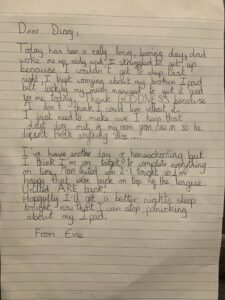 Dear Diary,
Today has been a really long, boring day, dad
woke me up early and I struggled to get up
because I couldn't get to sleep last
night. I kept worrying about my broken I pad
but luckily my mum managed to get it
for me today. Thank GOODNESS because
I don't think I could live without it.
I just need to make sure I keep that
out of my room from now on so he
doesn't break anything else....
I've have another day of homeschooling but
I think I'm on target to complete everything
on time, Man United won 2-1 tonight so I'm
happy that we're back on top of the league.
United ARE back!
Hopefully I'll get a better night's sleep
tonight now that I can stop panicking
about my I pad.
From Evie